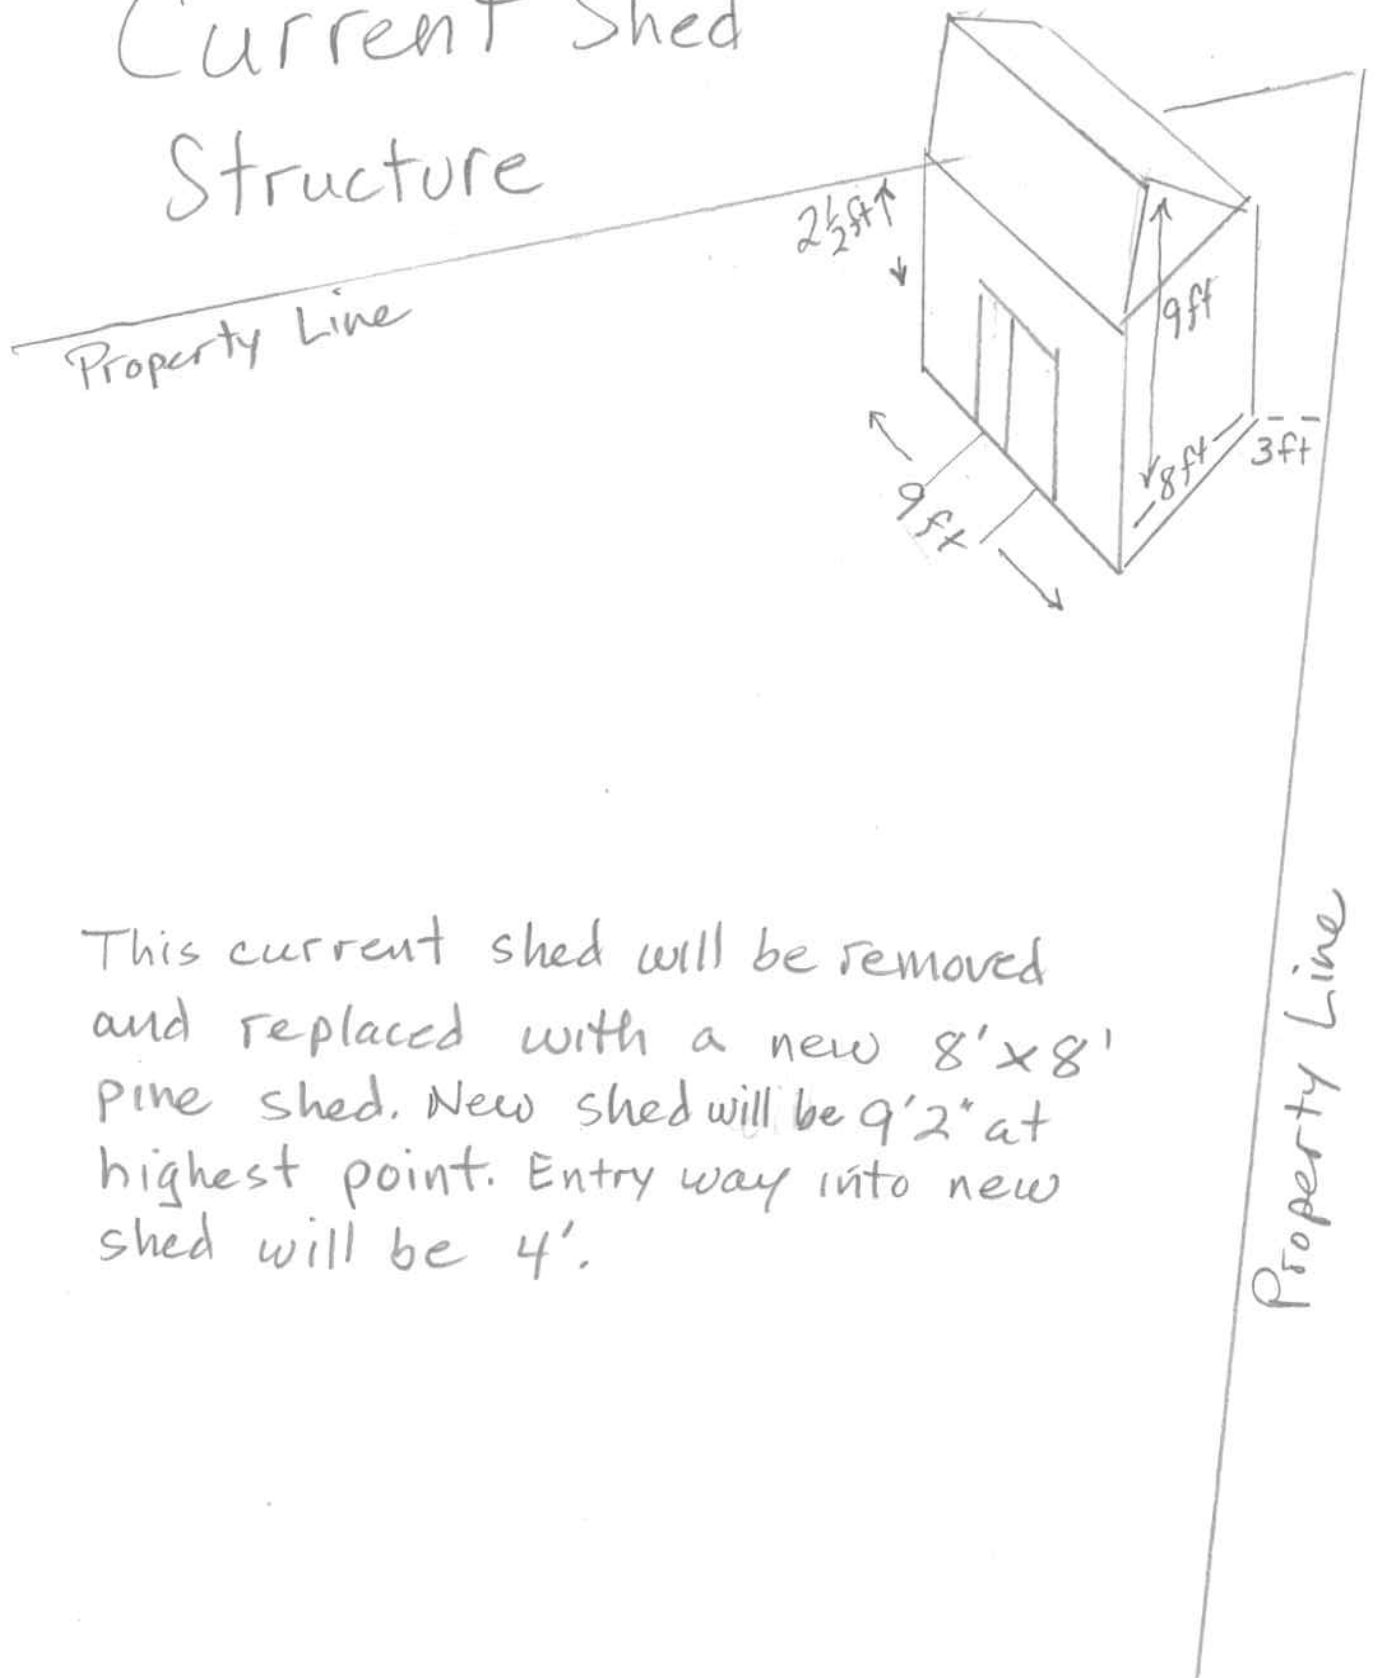 Current Shed
Structure
2½ft
Property Line
9ft
8ft
3ft
9ft
This current shed will be removed
and replaced with a new 8'x8'
pine shed. New shed will be 9'2" at
highest point. Entry way into new
shed will be 4'.
Property Line